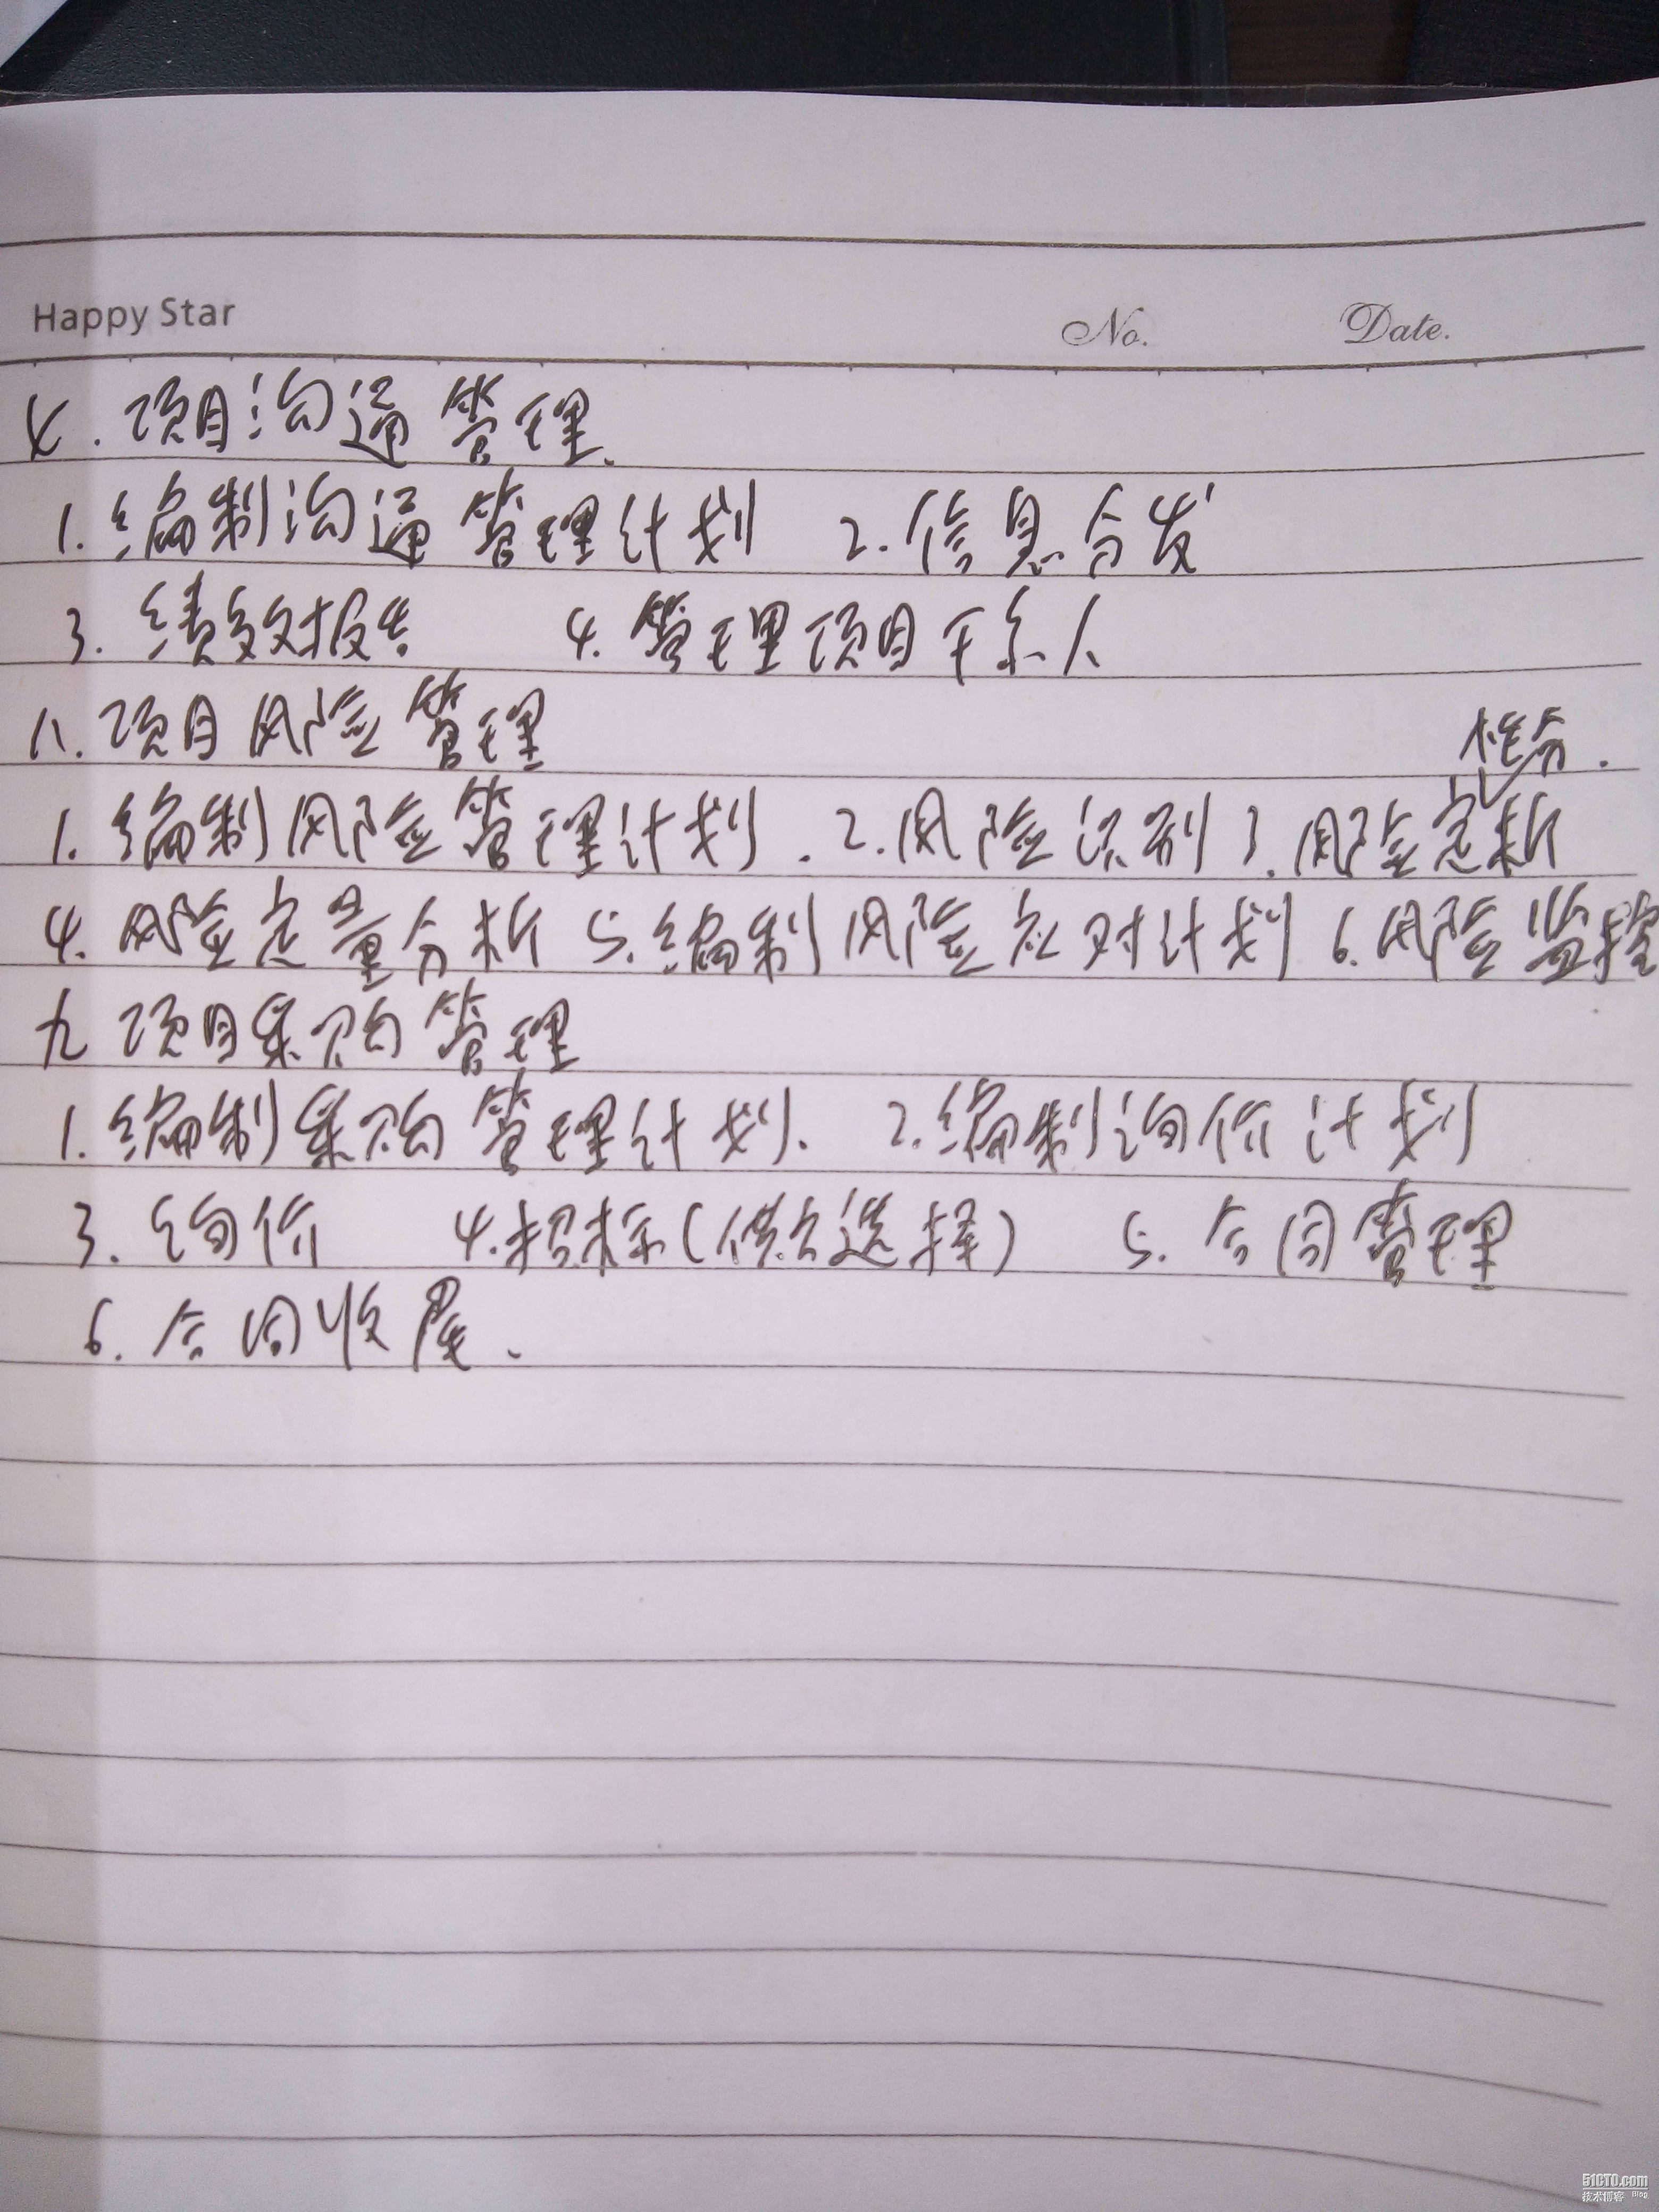 Happy Star No. Date.
七.项目沟通管理.
1.编制沟通管理计划 2.信息分发
3.绩效报告 4.管理项目干系人
八.项目风险管理
性分.
1.编制风险管理计划.2.风险识别 3.风险定析
4.风险定量分析 5.编制风险应对计划 6.风险监控
九 项目采购管理
1.编制采购管理计划. 2.编制询价计划
3.询价 4.招标(供方选择) 5.合同管理
6.合同收尾.
51CTO.com
技术博客 Blog